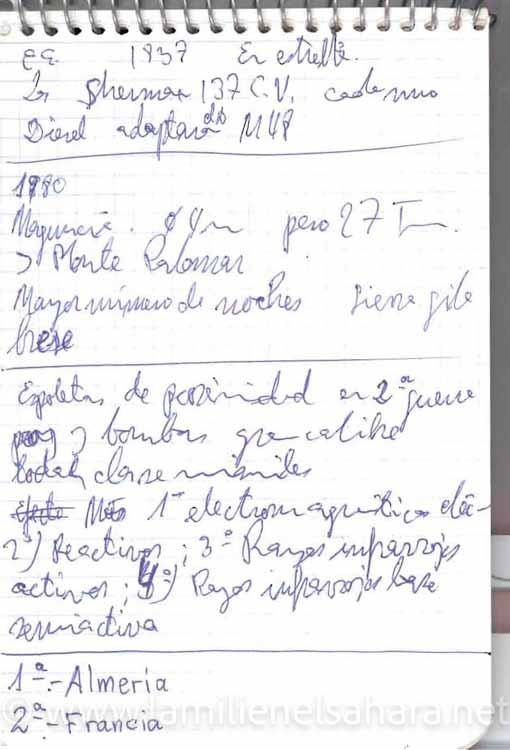 EE. 1937 En estrella.
Sherman 137 C.V. cada uno
Diesel adaptara M48
1980
Maquinaria. ϕ 4m peso 27 T
> Monte Palomar
Mayor número de noches Sierra
Espoletas de proximidad en 2ª guerra
> bombas gran calibre
todas clase misiles
1º electromagnéticas
2) Reactivos; 3º Rayos infrarrojos
activos; 4º) Rayos infrarrojos base
semiactiva
1ª.- Almeria
2ª.- Francia
www.lamilienelsahara.net